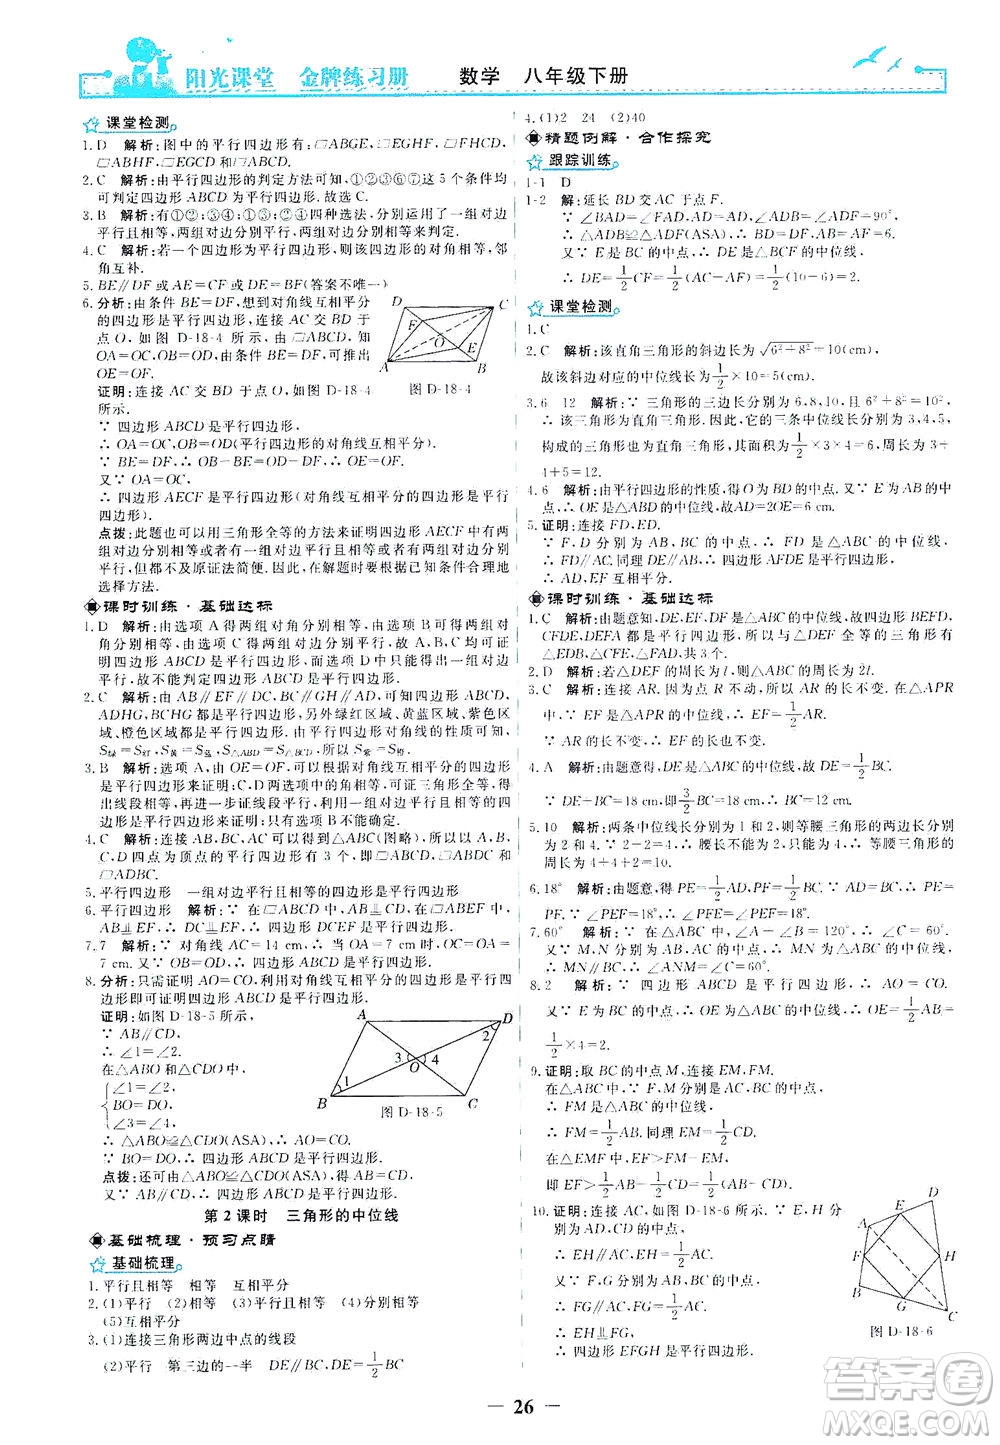 阳光课堂 金牌练习册 数学 八年级下册
课堂检测
1. D 解析:图中的平行四边形有:▱ABGE,▱FHCD,
▱ABHF,▱EGCD,▱EGHF,▱ABCD.
2. C 解析:由平行四边形的判定方法可知,①②③⑥⑦这5个条件均
可判定四边形ABCD为平行四边形.故选C.
3. B 解析:有①②;③④;①③;②④四种选法,分别运用了一组对边
平行且相等,两组对边分别平行,两组对边分别相等来判定.
4. C 解析:若一个四边形为平行四边形,则该四边形的对角相等,邻
角互补.
5. BE∥DF或AE=CF或DE=BF(答案不唯一)
6. 分析:由条件BE=DF,想到对角线互相平分
的四边形是平行四边形,连接AC交BD于
点O,如图D-18-4所示,根据▱ABCD可得
OA=OC,OB=OD,又BE=DF,可推出
OE=OF.
证明:连接AC交BD于点O,如图D-18-4
所示.
图D-18-4
∵四边形ABCD是平行四边形,
∴OA=OC,OB=OD(平行四边形的对角线互相平分).
∵BE=DF,∴OB-BE=OD-DF.∴OE=OF.
又∵OA=OC,
∴四边形AECF是平行四边形(对角线互相平分的四边形是平行
四边形).
点拨:此题也可以用三角形全等的方法来证明四边形AECF中两
组对边分别相等或者有一组对边平行且相等或者有两组对边分别
平行,但不及原证法简便.在解题时要根据已知条件合理地
选择方法.
课时训练·基础达标
1. D 解析:由选项A得两组对角分别相等,由选项B可得两组对
边分别相等,由选项C得两组对边分别平行,故选项A,B,C可证
明四边形ABCD是平行四边形,而选项D中只能得出一组对边
平行,故不能判定四边形ABCD是平行四边形.
2. C 解析:由AB∥EF∥DC,BC∥GH∥AD,可知四边形ABCD,
ADHG,BCHG都是平行四边形,另外绿红区域、黄蓝区域、紫色区
域、橙色区域也都是平行四边形,由平行四边形对角线的性质可知,
S绿=S红,S黄=S蓝,S△ABD=S△BCD,所以S紫=S橙.
3. B 解析:选项A,由OE=OF,可以通过对角线互相平分的四边形
是平行四边形来证明;C,D选项可以通过证明三角形全等,得
出线段相等,再进一步证线段平行;只有选项B不能确定.
4. C 解析:连接AB,BC,AC可以得到△ABC(图略),所以以A,B,
C,D四点为顶点的平行四边形有▱ACBD,▱ABCD和
▱ADBC.
5. 平行四边形 一组对边平行且相等的四边形是平行四边形
6. 平行四边形 解析:∵在▱ABCD中,AB⫫CD,在▱ABEF中,
AB⫫EF,∴DC⫫EF.∴四边形DCEF是平行四边形.
7. 7 解析:∵对角线AC=14 cm,∴当OA=OC=7 cm时,OA=
OC.又∵OB=OD,∴四边形ABCD是平行四边形.
8. 分析:只需证明AO=CO,根据对角线互相平分的四边形是平行四
边形即可证明四边形ABCD是平行四边形.
证明:如图D-18-5所示.
∵AB∥CD,
∴∠1=∠2.
在△ABO和△CDO中,
∠1=∠2,
BO=DO,
∠3=∠4,
图D-18-5
∴△ABO≌△CDO(ASA).∴AO=CO.
又∵BO=DO,∴四边形ABCD是平行四边形.
点拨:还可由△ABO≌△CDO(ASA),得AB=CD,
又∵AB∥CD,∴四边形ABCD是平行四边形.
第2课时 三角形的中位线
基础梳理·预习点睛
基础梳理
1. 平行且相等 相等 互相平分
2. (1)平行 (2)相等 (3)平行且相等 (4)对角线
(5)互相平分
3. (1)连接三角形两边中点的线段
(2)平行 第三边的一半 DE∥BC,DE=1/2BC
4. (1)2 24 (2)40
精题例解·合作探究
跟踪训练
1-1 D
1-2 解:延长BD交AC于点F.
∵∠BAD=∠FAD,AD=AD,∠ADB=∠ADF=90°,
∴△ADB≌△ADF(ASA).∴BD=DF,AB=AF=6.
又∵E是BC的中点,∴DE是△BCF的中位线.
∴DE=1/2CF=1/2(AC-AF)=1/2(10-6)=2.
课堂检测
1. C
2. C 解析:该直角三角形的斜边长为√6²+8²=10(cm),
故该斜边对应的中位线长为1/2×10=5(cm).
3. 6 12 解析:∵三角形的三边长分别为6,8,10,且6²+8²=10²,
∴该三角形为直角三角形.因此,它的三条中位线长分别为3,4,5,
构成的三角形也为直角三角形,其面积为1/2×3×4=6,周长为3+
4+5=12.
4. 6 解析:由平行四边形的性质,得O为BD的中点.又∵E为AB的
中点,∴OE是△ABD的中位线.故AD=2OE=6.
5. 证明:连接FD,ED.
∵F,D分别为AB,BC的中点,∴FD是△ABC的中位线.
∴FD∥AC.同理,DE∥AB.∴四边形AFDE是平行四边形.
∴AD,EF互相平分.
课时训练·基础达标
1. C 解析:由题意知,DE,EF,DF是△ABC的中位线,故四边形BEFD,
CFDE,DEFA都是平行四边形,所以与△DEF全等的三角形有
△EDB,△CFE,△FAD,共3个.
2. D 解析:若△DEF的周长为l,则△ABC的周长为2l.
3. C 解析:连接AR,因为点R不动,所以AR的长不变.在△APR中,
∵EF是△APR的中位线,∴EF=1/2AR.
∵AR的长不变,∴EF的长也不变.
4. A 解析:由题意可知,OE=1/2BC,AE=1/2AB,AO=1/2AC.
∵AB+BC+AC=18 cm,
5. 10 解析:两条中位线长分别为1和2,则等腰三角形的两边长分别
为2和4.∵2+2=4,∴腰长不能为2,只能为4.∴等腰三角形的
周长为4+4+2=10.
6. 18° 解析:由题意,得PE=1/2AD,PF=1/2BC.∵AD=BC,∴PE=
PF.∵∠PEF=18°,∴∠PFE=∠PEF=18°.
8. 2 解析:∵四边形ABCD是平行四边形,∴AO=CO.
又∵E为BC的中点,∴OE为△ABC的中位线.∴OE=1/2AB=
1/2×4=2.
9. 证明:取BC的中点M,连接EM,FM.
在△ABC中,∵F,M分别是AC,BC的中点,
∴FM是△ABC的中位线.
∴FM=1/2AB.同理可证,EM=1/2CD.
在△EMF中,EF>FM-EM,
即EF>1/2AB-1/2CD.
10. 证明:连接AC,如图D-18-6所示.∵E,H分
别为AD,CD的中点,
∴EH∥AC,EH=1/2AC.
又∵F,G分别是AB,BC的中点,
∴FG∥AC,FG=1/2AC.
∴EH⫫FG.
∴四边形EFGH是平行四边形.
图D-18-6
答案圈
MXQE.COM
26